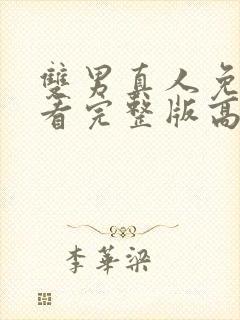 雙男真人免
看完整版高
李華梁